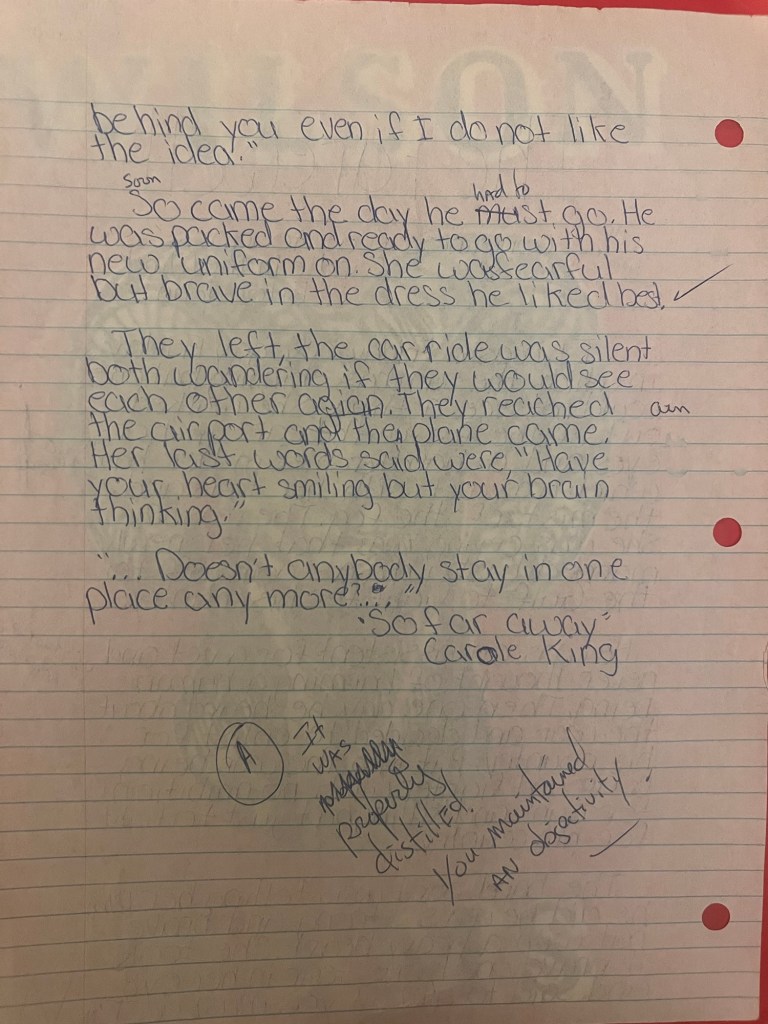 behind you even if I do not like
the idea."
soon
So came the day he must go. He
had to
was packed and ready to go with his
new uniform on. She was fearful
but brave in the dress he liked best.
They left, the car ride was silent
both wandering if they would see
each other agian. They reached
ain
the airport and the plane came.
Her last words said were, "Have
your heart smiling but your brain
thinking."
"... Doesn't anybody stay in one
place any more?..."
"So far away"
Carole King
A
It
was
properly
distilled.
You maintained
an objectivity.